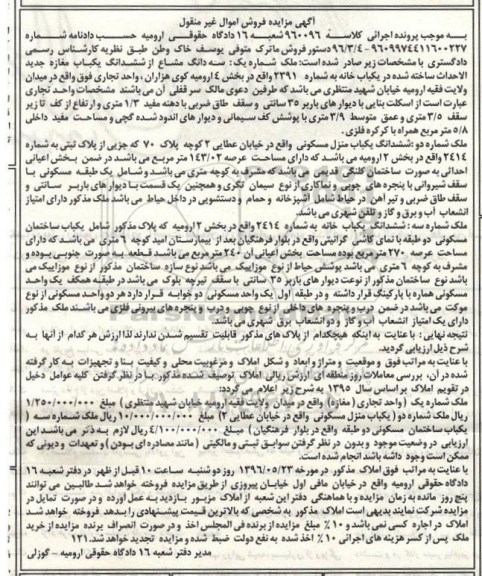 آگهی مزایده فروش اموال غیر منقول
به موجب پرونده اجرائی کلاسه ۹۶۰۰۹۶ شعبه ۱۶ دادگاه حقوقی ارومیه حسب دادنامه شماره
۹۶۰۹۹۷۴۴۱۱۶۰۰۲۲۷-۹۶/۳/۴ دستور فروش ماترک متوفی یوسف خاک وطن طبق نظریه کارشناس رسمی
دادگستری با مشخصات زیر صادر شده است: ملک شماره یک: سه دانگ مشاع از ششدانگ یکباب مغازه جدید
الاحداث ساخته شده در یکباب خانه به شماره ۲۳۹۱ واقع در بخش ۴ ارومیه کوی هزاران، واحد تجاری فوق واقع در میدان
ولایت فقیه ارومیه خیابان شهید منتظری می باشد که طرفین دعوی مالک سر قفلی آن می باشند مشخصات واحد تجاری
عبارت است از اسکلت بنایی با دیوار های باربر ۳۵ سانتی و سقف طاق ضربی با دهنه مفید ۱/۳ متری و ارتفاع از کف تا زیر
سقف ۳/۵ متری و عمق متوسط ۳/۹ متری با پوشش کف سیمانی و دیوار های اندود شده گچی و مساحت مفید داخلی
۵/۸ متر مربع همراه با کرکره فلزی.
ملک شماره دو: ششدانگ یکباب منزل مسکونی واقع در خیابان عطایی ۲ کوچه پلاک ۷۰ که جزیی از پلاک ثبتی به شماره
۲۴۱۴ واقع در بخش ۲ ارومیه می باشد که دارای مساحت عرصه ۱۴۳/۰۲ متر مربع می باشد در ضمن بخش اعیانی
احداثی به صورت ساختمان کلنگی قدیمی می باشد که مشرف به کوچه متری می باشد و شامل یک طبقه مسکونی با
سقف شیروانی با پنجره های چوبی و نماکاری از نوع سیمان نگری و همچنین یک قسمت با دیوار های باربر سانتی و
سقف طاق ضربی و تیر آهن در حیاط شامل آشپزخانه و حمام و دستشویی در داخل حیاط می باشد ملک مذکور دارای امتیاز
انشعاب آب و برق و گاز و تلفن شهری می باشد.
ملک شماره سه: ششدانگ یکباب خانه به شماره ۲۴۱۴ واقع در بخش ۲ ارومیه که پلاک مذکور شامل یکباب ساختمان
مسکونی دو طبقه با نمای کاشی گرانیتی واقع در بلوار فرهنگیان بعد از بیمارستان امید کوچه ۶ متری می باشد که دارای
مساحت عرصه ۲۷۰ متر مربع بوده مساحت بخش اعیانی آن ۲۴۰ متر مربع می باشد قطعه به صورت جنوبی بوده و
مشرف به کوچه ۶ متری می باشد پوشش حیاط از نوع موزاییک می باشد نوع سازه ساختمان مذکور از نوع موزاییک می
باشد نوع ساختمان مذکور از نوعت دیوار های باربر ۳۵ سانتی با سقف تیرچه بلوک می باشد در طبقه همکف یک واحد
مسکونی همراه با پارکینگ قرار داشته و در طبقه اول یک واحد مسکونی دو خوابه قرار دارد هر دو واحد مسکونی از نوع
موکت می باشد در ضمن درب و پنجره های داخلی از نوع چوبی و درب و پنجره های بیرونی فلزی می باشند ملک مذکور
دارای یک امتیاز انشعاب آب و گاز و دو انشعاب برق شهری می باشد.
نتیجه نهایی: با عنایت به اینکه هیچکدام از پلاک های مذکور قابلیت تقسیم شدن ندارند لذا ارزش هر کدام از آنها به
شرح ذیل ارزیابی گردید.
با عنایت به مراتب فوق و موقعیت و متراژ و ابعاد و شکل املاک و مرغوبیت محلی و کیفیت بنا و تجهیزات به کار گرفته
شده در آن، بررسی معاملات روز منطقه ای ارزش ریالی املاک توصیف شده مذکور با در نظر گرفتن کلیه عوامل دخیل
در تقویم املاک بر اساس سال ۱۳۹۵ به شرح زیر اعلام می گردد:
ملک شماره یک (واحد تجاری) (مغازه) واقع در میدان ولایت فقیه ارومیه خیابان شهید منتظری) مبلغ ۱/۲۵۰/۰۰۰/۰۰۰
ریال ملک شماره دو (یکباب منزل مسکونی واقع در خیابان عطایی ۲) مبلغ ۱۰/۰۰۰/۰۰۰/۰۰۰ ریال ملک شماره سه (
یکباب ساختمان مسکونی دو طبقه واقع در بلوار فرهنگیان) مبلغ ۴/۱۰۰/۰۰۰/۰۰۰ ریال لازم به ذکر می باشد این
ارزیابی در وضعیت موجود و بدون در نظر گرفتن سوابق ثبتی و مالکیتی (مانند مصادره ای بودن) و تعهدات و دیونی که
ممکن است وجود داشته باشد انجام شده است.
با عنایت به مراتب فوق املاک مذکور در مورخه ۱۳۹۶/۰۵/۲۳ روز دو شنبه ساعت ۱۰ قبل از ظهر در دفتر شعبه ۱۶
دادگاه حقوقی ارومیه واقع در خیابان مافی اول خیابان پیروزی از طریق مزایده فروخته خواهد شد طالبین می توانند
پنج روز مانده به زمان مزایده و با هماهنگی دفتر این شعبه از املاک مزبور بازدید به عمل آورده و در صورت تمایل در
مزایده شرکت نمایند بدیهی است املاک مذکور به شخصی که بالاترین قیمت پیشنهادی را بدهد فروخته خواهد شد
املاک در اجاره کسی نمی باشد و ۱۰٪ مبلغ مزایده از برنده فی المجلس اخذ و در صورت انصراف برنده مزایده از خرید
ملک پس از کسر هزینه های اجرائی ۱۰٪ اخذ شده به نفع دولت ضبط شده و مزایده تجدید خواهد شد. ۱۲۱
مدیر دفتر شعبه ۱۶ دادگاه حقوقی ارومیه - گوزلی